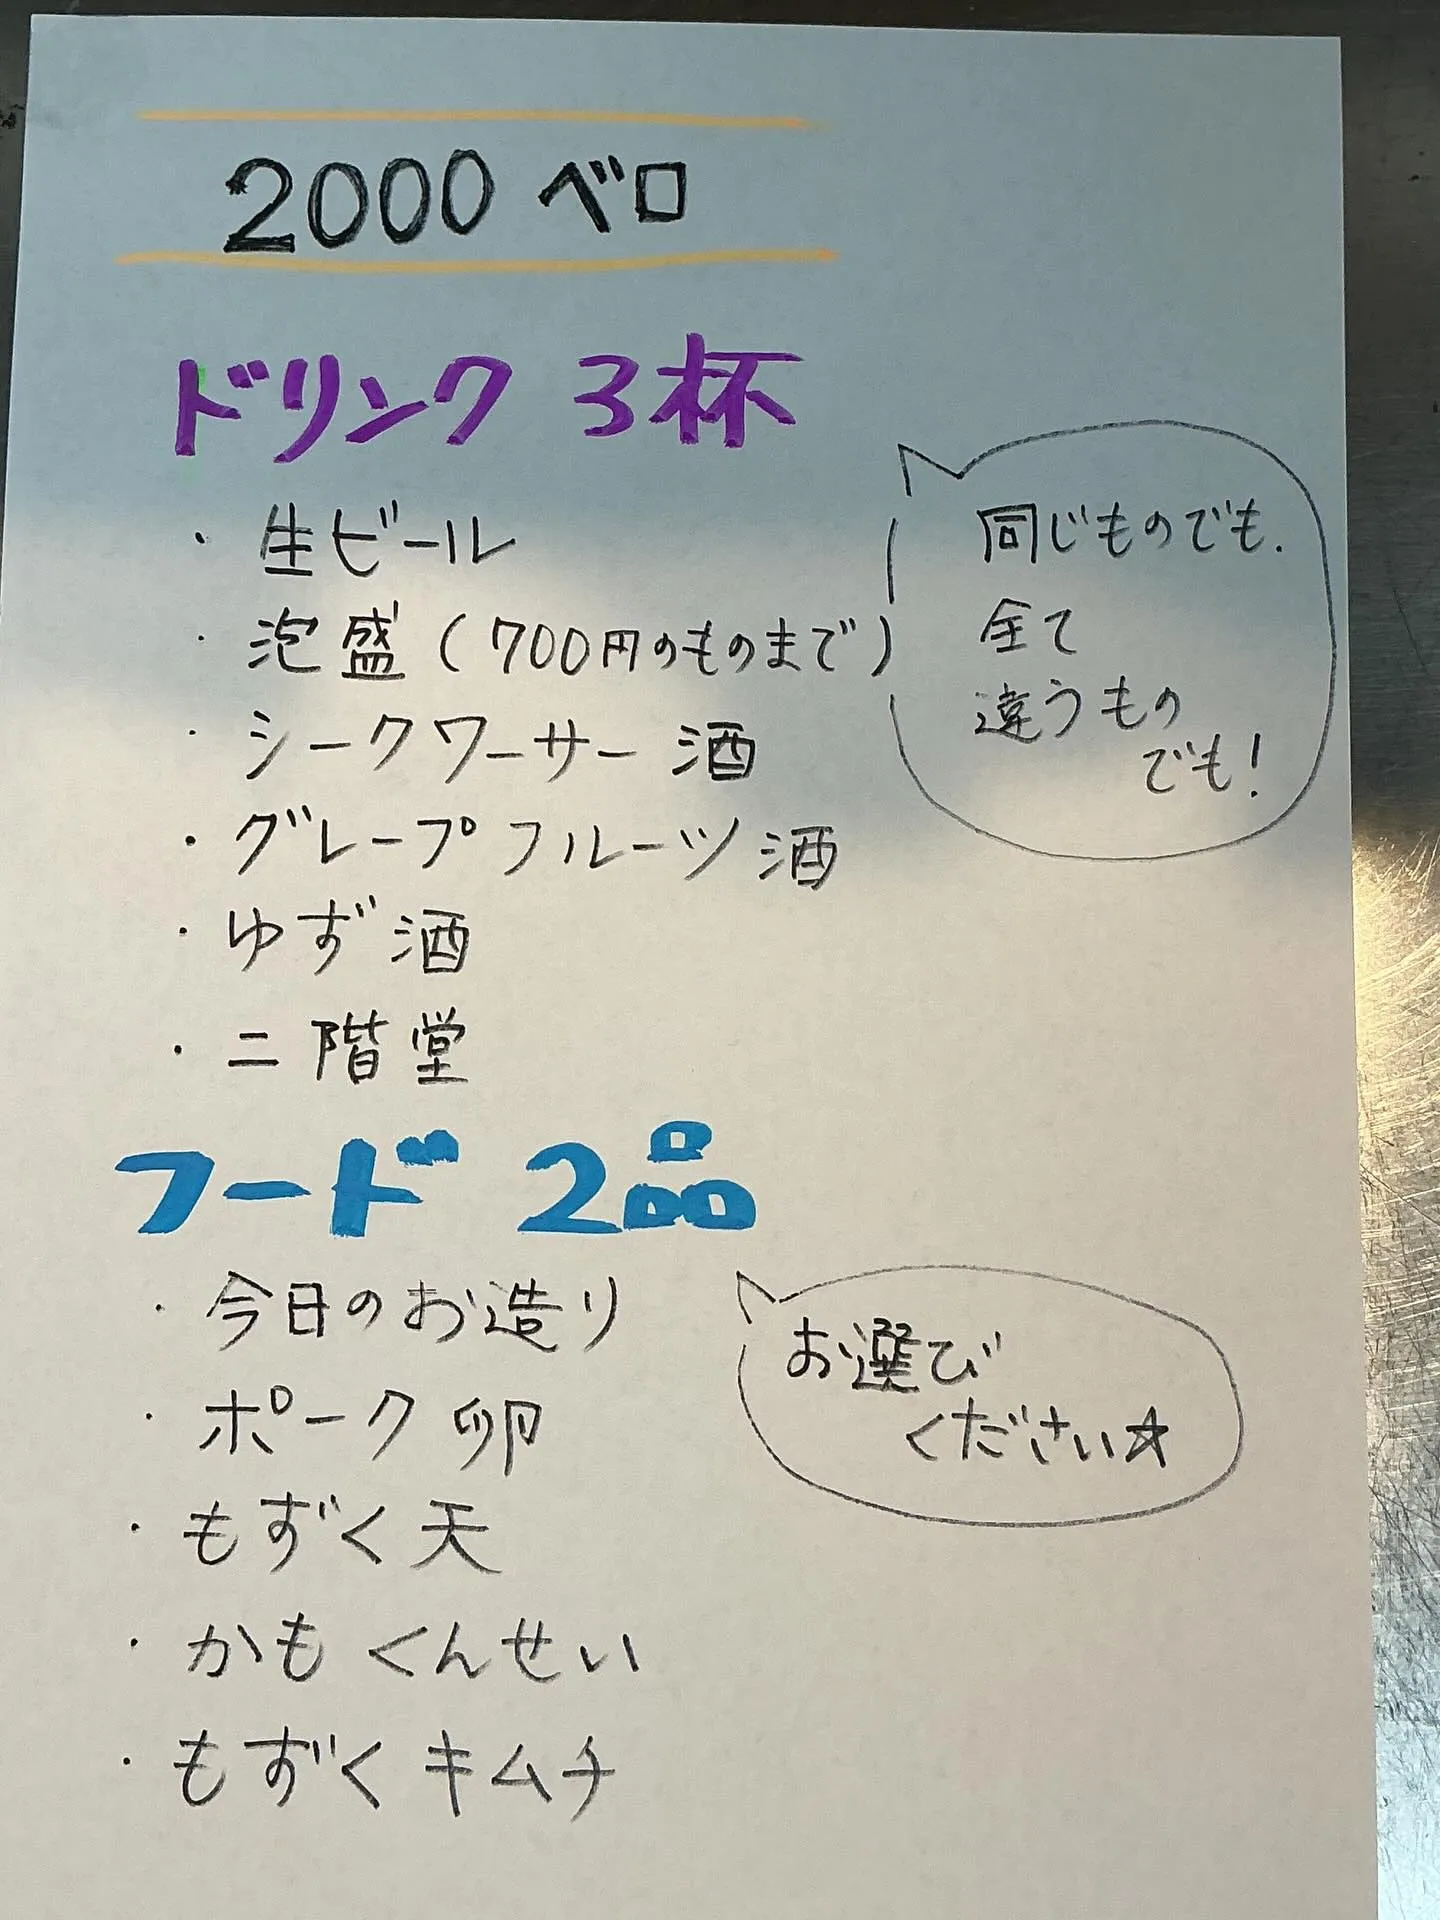 2000 ベロ
ドリンク 3杯
・生ビール
・泡盛(700円のものまで)
・シークワーサー酒
・グレープフルーツ酒
・ゆず酒
・二階堂
同じものでも、
全て
違うもの
でも!
フード 2品
・今日のお造り
・ポーク卵
・もずく天
・かもくんせい
・もずくキムチ
お選び
ください☆